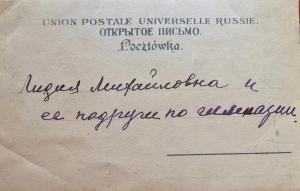 UNION POSTALE UNIVERSELLE RUSSIE.
ОТКРЫТОЕ ПИСЬМО.
Pocztówka.
Лидия Михайловна и
ее подруги по гимназии.